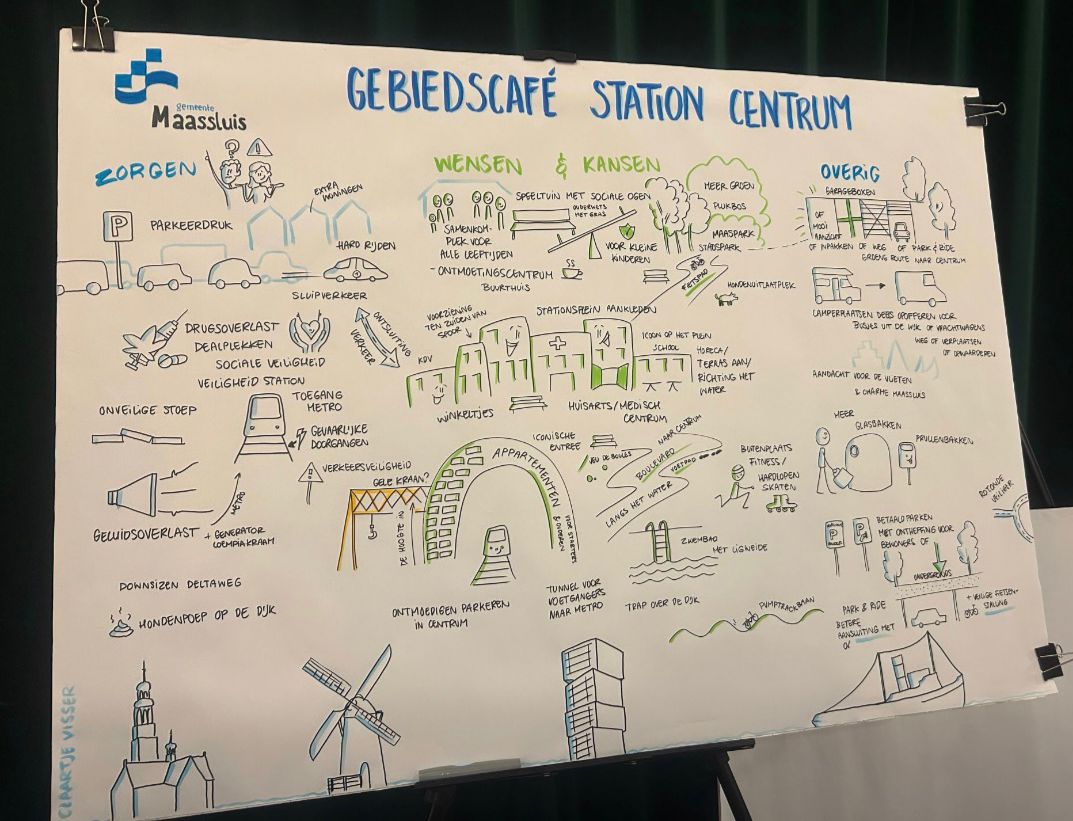 gemeente
Maassluis
GEBIEDSCAFÉ STATION CENTRUM
ZORGEN
?
!
EXTRA
WONINGEN
P
PARKEERDRUK
HARD RIJDEN
SLUIPVERKEER
DRUGSOVERLAST
DEALPLEKKEN
SOCIALE VEILIGHEID
VEILIGHEID STATION
ONTSLUITING
VERKEER
ONVEILIGE STOEP
TOEGANG
METRO
GEVAARLIJKE
DOORGANGEN
! VERKEERSVEILIGHEID
METRO
GELUIDSOVERLAST
+ GENERATOR
LOEMPIAKRAAM
DOWNSIZEN DELTAWEG
HONDENPOEP OP DE DIJK
WENSEN & KANSEN
SPEELTUIN MET SOCIALE OGEN
ONDERWETS
MET GRAS
SAMENKOM-
PLEK VOOR
ALLE LEEFTIJDEN
VOOR KLEINE
KINDEREN
- ONTMOETINGSCENTRUM
BUURTHUIS
MEER GROEN
PLUKBOS
MAASPARK
STADSPARK
FIETSPAD
HONDENUITLAATPLEK
STATIONSPLEIN AANKLEDEN
VOORZIENING
TEN ZUIDEN VAN
SPOOR
KDV
ICOON OP HET PLEIN
SCHOOL
HORECA/
TERRAS AAN/
RICHTING HET
WATER
WINKELTJES
HUISARTS/MEDISCH
CENTRUM
GELE KRAAN?
DE HOOGTE IN
APPARTEMENTEN
VOOR STARTERS
& OUDEREN
ICONISCHE
ENTREE
JEU DE BOULES
NAAR CENTRUM
BOULEVARD
VOETPAD
LANGS HET WATER
BUITENPLAATS
FITNESS/
HARDLOPEN
SKATEN
ZWEMBAD
MET LIGWEIDE
ONTMOEDIGEN PARKEREN
IN CENTRUM
TUNNEL VOOR
VOETGANGERS
NAAR METRO
TRAP OVER DE DIJK
PUMPTRACKBAAN
OVERIG
GARAGEBOXEN
OF
MOOI
OF INPAKKEN OF WEG OF PARK & RIDE
GROENE ROUTE NAAR CENTRUM
CAMPERPLAATSEN DEELS OPOFFEREN VOOR
BUSJES UIT DE WIJK OF VRACHTWAGENS
WEG OF VERPLAATSEN
OF OPWAARDEREN
AANDACHT VOOR DE VLIETEN
& CHARME MAASSLUIS
MEER
GLASBAKKEN
PRULLENBAKKEN
ROTONDE
VEILIGER
P
P
BETAALD PARKEN
MET ONTHEFFING VOOR
BEWONERS OF
ONDERGRONDS
PARK & RIDE
BETERE
AANSLUITING MET
OV
+ VEILIGE FIETSEN-
STALLING
CLAARTJE VISSER